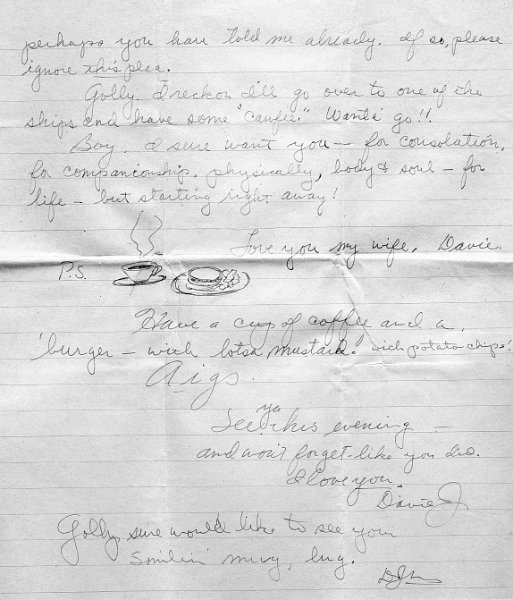 perhaps you have told me already. If so, please
ignore this plea.
Golly. I reckon I'll go over to one of the
ships and have some "caufee." Wanta go!!
Boy, I sure want you — for consolation,
for companionship, physically, body & soul — for
life — but starting right away!
Love you my wife, Davie.
P.S.
Have a cup of coffee and a
'burger — with lotsa mustard. with potato chips!
Aigs.
See ya this evening —
and won't forget like you did.
I love you.
Davie J
Golly sure would like to see your
Smilin'